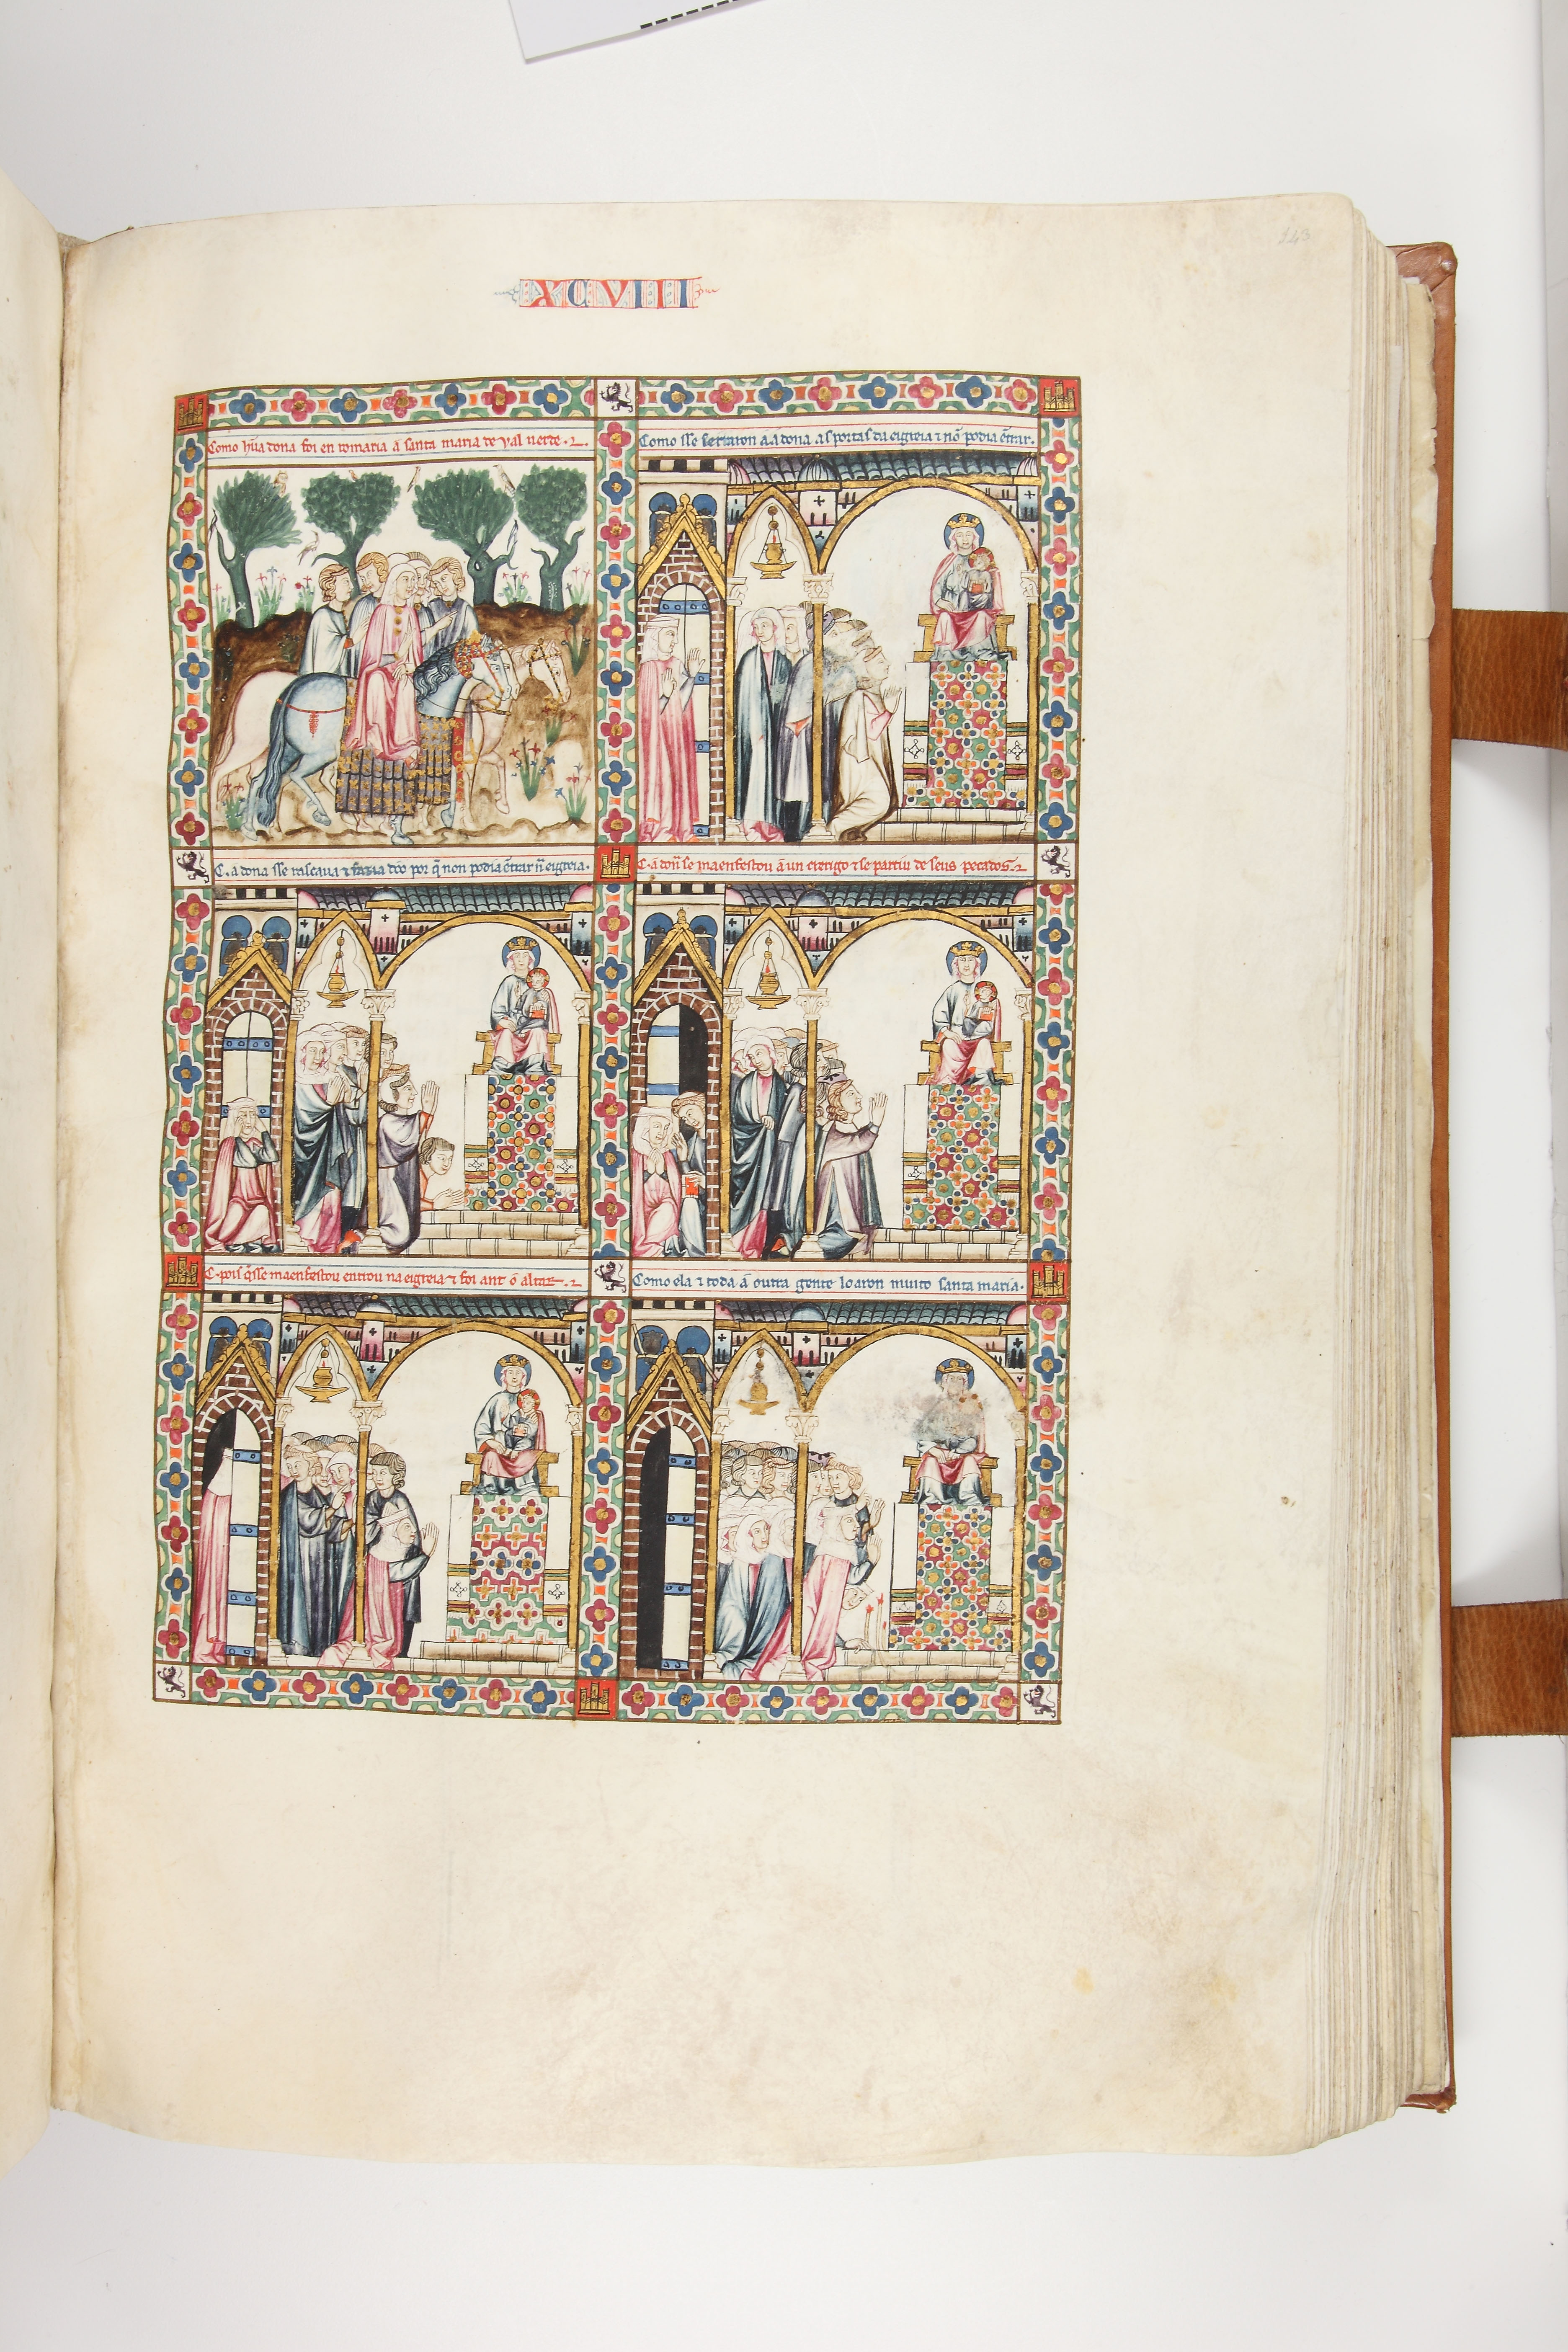 143
XCVIII
Como hũa dona foi en romaria a santa maria de val uerde.
Como sse serraron a a dona as portas da eigreia ⁊ nõ podia ẽtrar.
C. a dona sse rascaua ⁊ fazia doo por q̃ non podia ẽtrar nª eigreia.
C. a donª se maenfestou a un crerigo ⁊ se partiu de seus pecados.
C. pois q̃sse maenfestou entrou na eigreia ⁊ foi ant o altar.
Como ela ⁊ toda a outra gente loaron muito santa maria.